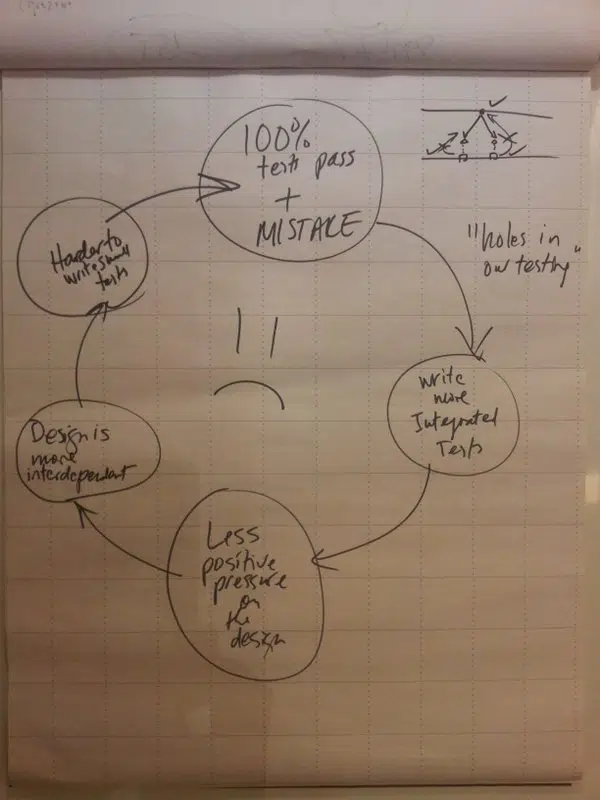 100%
tests pass
+
MISTAKE
"holes in
our testing"
write
more
Integrated
Tests
Less
positive
pressure
on
the
design
Design is
more
interdependent
Harder to
write small
tests